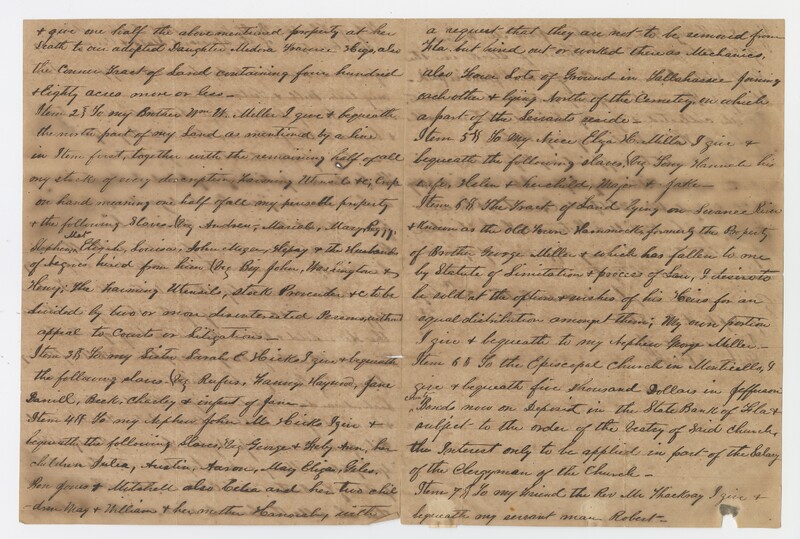 & give one half the above mentioned property at her
Death to our adopted Daughter Medora Florence Higs, also
the Corner Tract of Land containing four hundred
& Eighty acres more or less —
Item 2d To my Brother Wm W. Miller I give & bequeath
the north part of my Land as mentioned by a line
in Item first, together with the remaining half of all
my stock of every description, Farming Utensils &c, Crop
on hand meaning one half of all my perishable property
& the following Slaves (Viz Andrew, Mariah, Mary
Stephen, Elijah, Louisa, John & the Husbands
of Negroes hired from him (Viz Big John, Washington &
Henry; the Farming Utensils, Stock Provender &c to be
divided by two or more disinterested Persons, without
appeal to Courts or Litigations —
Item 3d To my Sister Sarah E Hicks I give & bequeath
the following slaves (Viz Rufus, Fanny, Haywood, Jane
Darrell, Beck, Charley & infant of Jane —
Item 4th To my Nephew John M. Hicks I give &
bequeath the following Slaves, Viz George & Ann, her
children Julia, Austin, Aaron, Mary Eliza, Giles,
Ben Jones & Mitchell also Celia and her two chil
-dren May & William & her mother with
a request that they are not to be removed from
Fla. but hired out or worked there as Mechanics,
also Four Lots of Ground in Tallahassee joining
each other & lying North of the Cemetery, on which
a part of the Servants reside —
Item 5th To My Niece Eliza H. Miller I give &
bequeath the following slaves (Viz Hannah his
wife, Helen & her child, Major & Jake —
Item 6th The Tract of Land lying on Suwanee River
& Known as the old Town Hammock, formerly the Property
of Brother George Miller & which has fallen to me
by Statute of Limitation & process of Law, I desire to
be sold at the option & wishes of his Heirs for an
equal distribution amongst them; My own portion
I give & bequeath to my Nephew George Miller —
Item 6th To the Episcopal Church in Monticello, I
give & bequeath five thousand Dollars in Jefferson
County Bonds now on Deposit in the State Bank of Fla &
subject to the order of the Vestry of Said Church,
the Interest only to be applied in part of the Salary
of the Clergyman of the Church —
Item 7th To my friend the Rev Mr Thackray I give &
bequeath my servant man Robert —